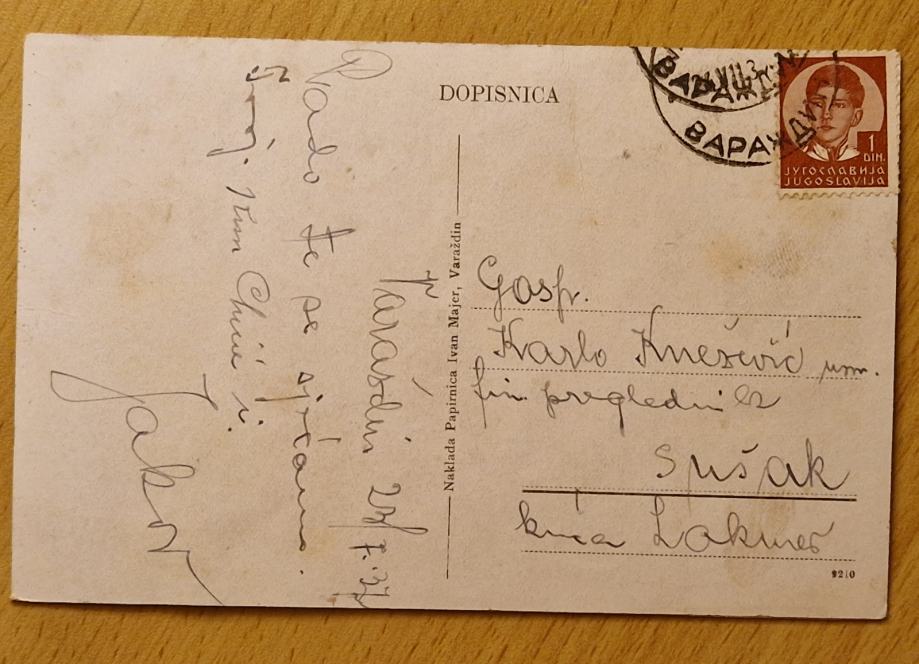 DOPISNICA
ВАРАЖДИН
ВАРАЖДИН
1
DIN.
ЈУГОСЛАВИЈА
JUGOSLAVIJA
Nakladа Papirnica Ivan Majer, Varaždin
Gosp.
Karlo Knežević
fin preglednik
Sušak
kuća
9210
Rado te se sjećamo.
Tvoj kum i
Jakov